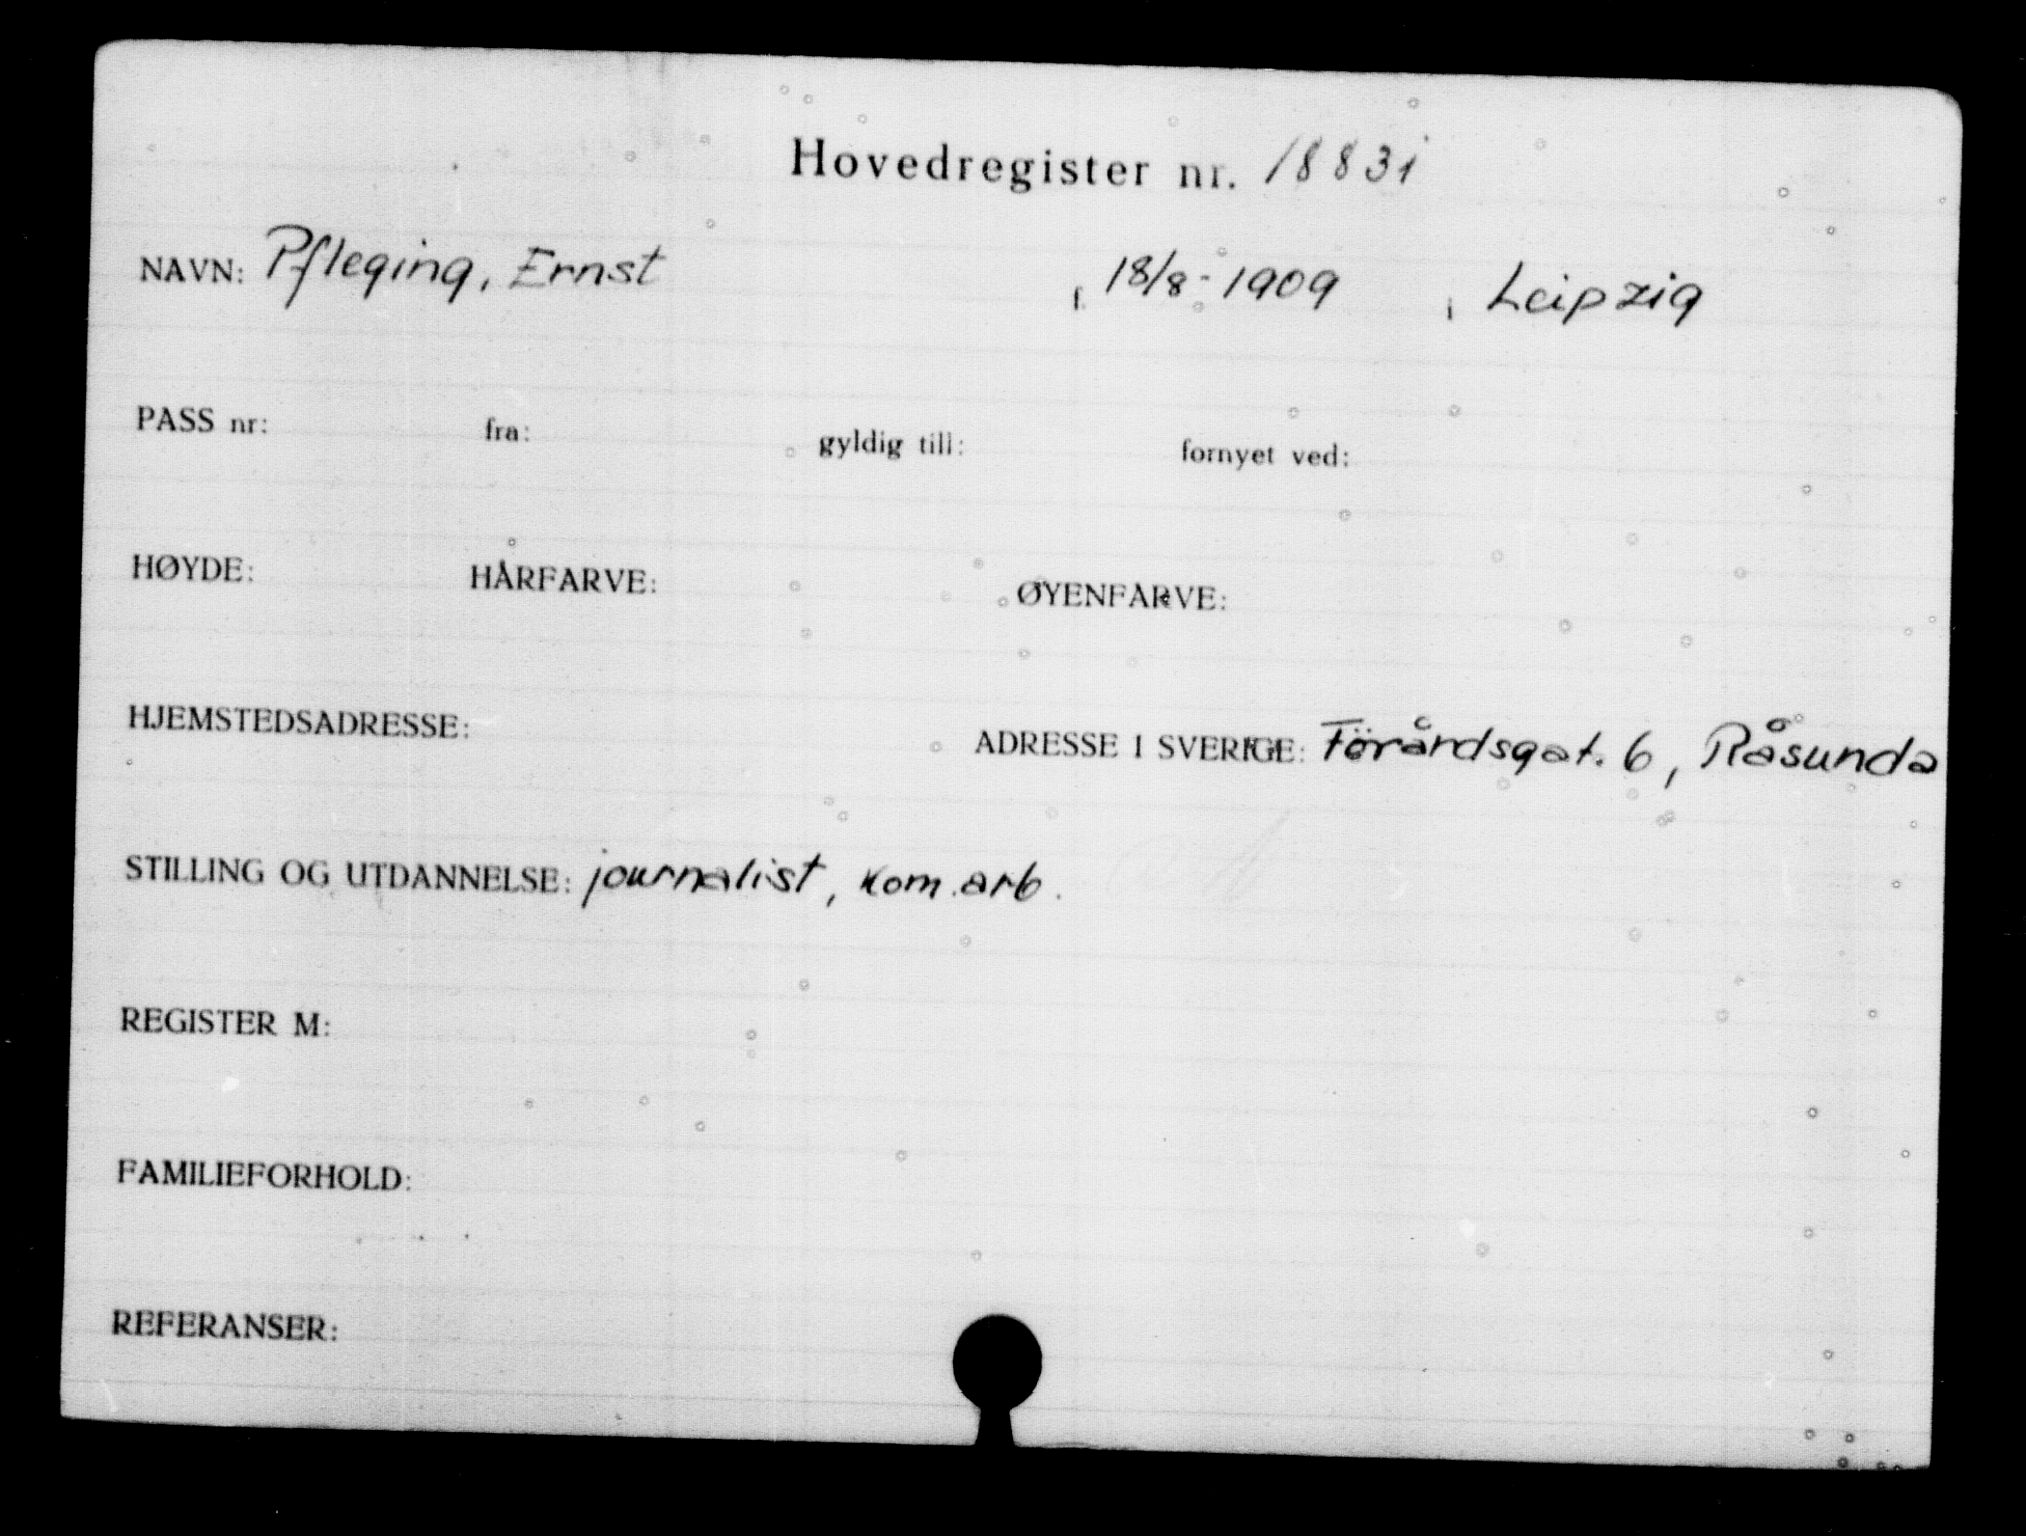 Hovedregister nr. 18831
NAVN: Pfleging, Ernst f. 18/8-1909 i Leipzig
PASS nr: fra: gyldig till: fornyet ved:
HØYDE: HÅRFARVE: ØYENFARVE:
HJEMSTEDSADRESSE: ADRESSE I SVERIGE: Förårdsgat. 6, Råsunda
STILLING OG UTDANNELSE: journalist, kom.arb.
REGISTER M:
FAMILIEFORHOLD:
REFERANSER: